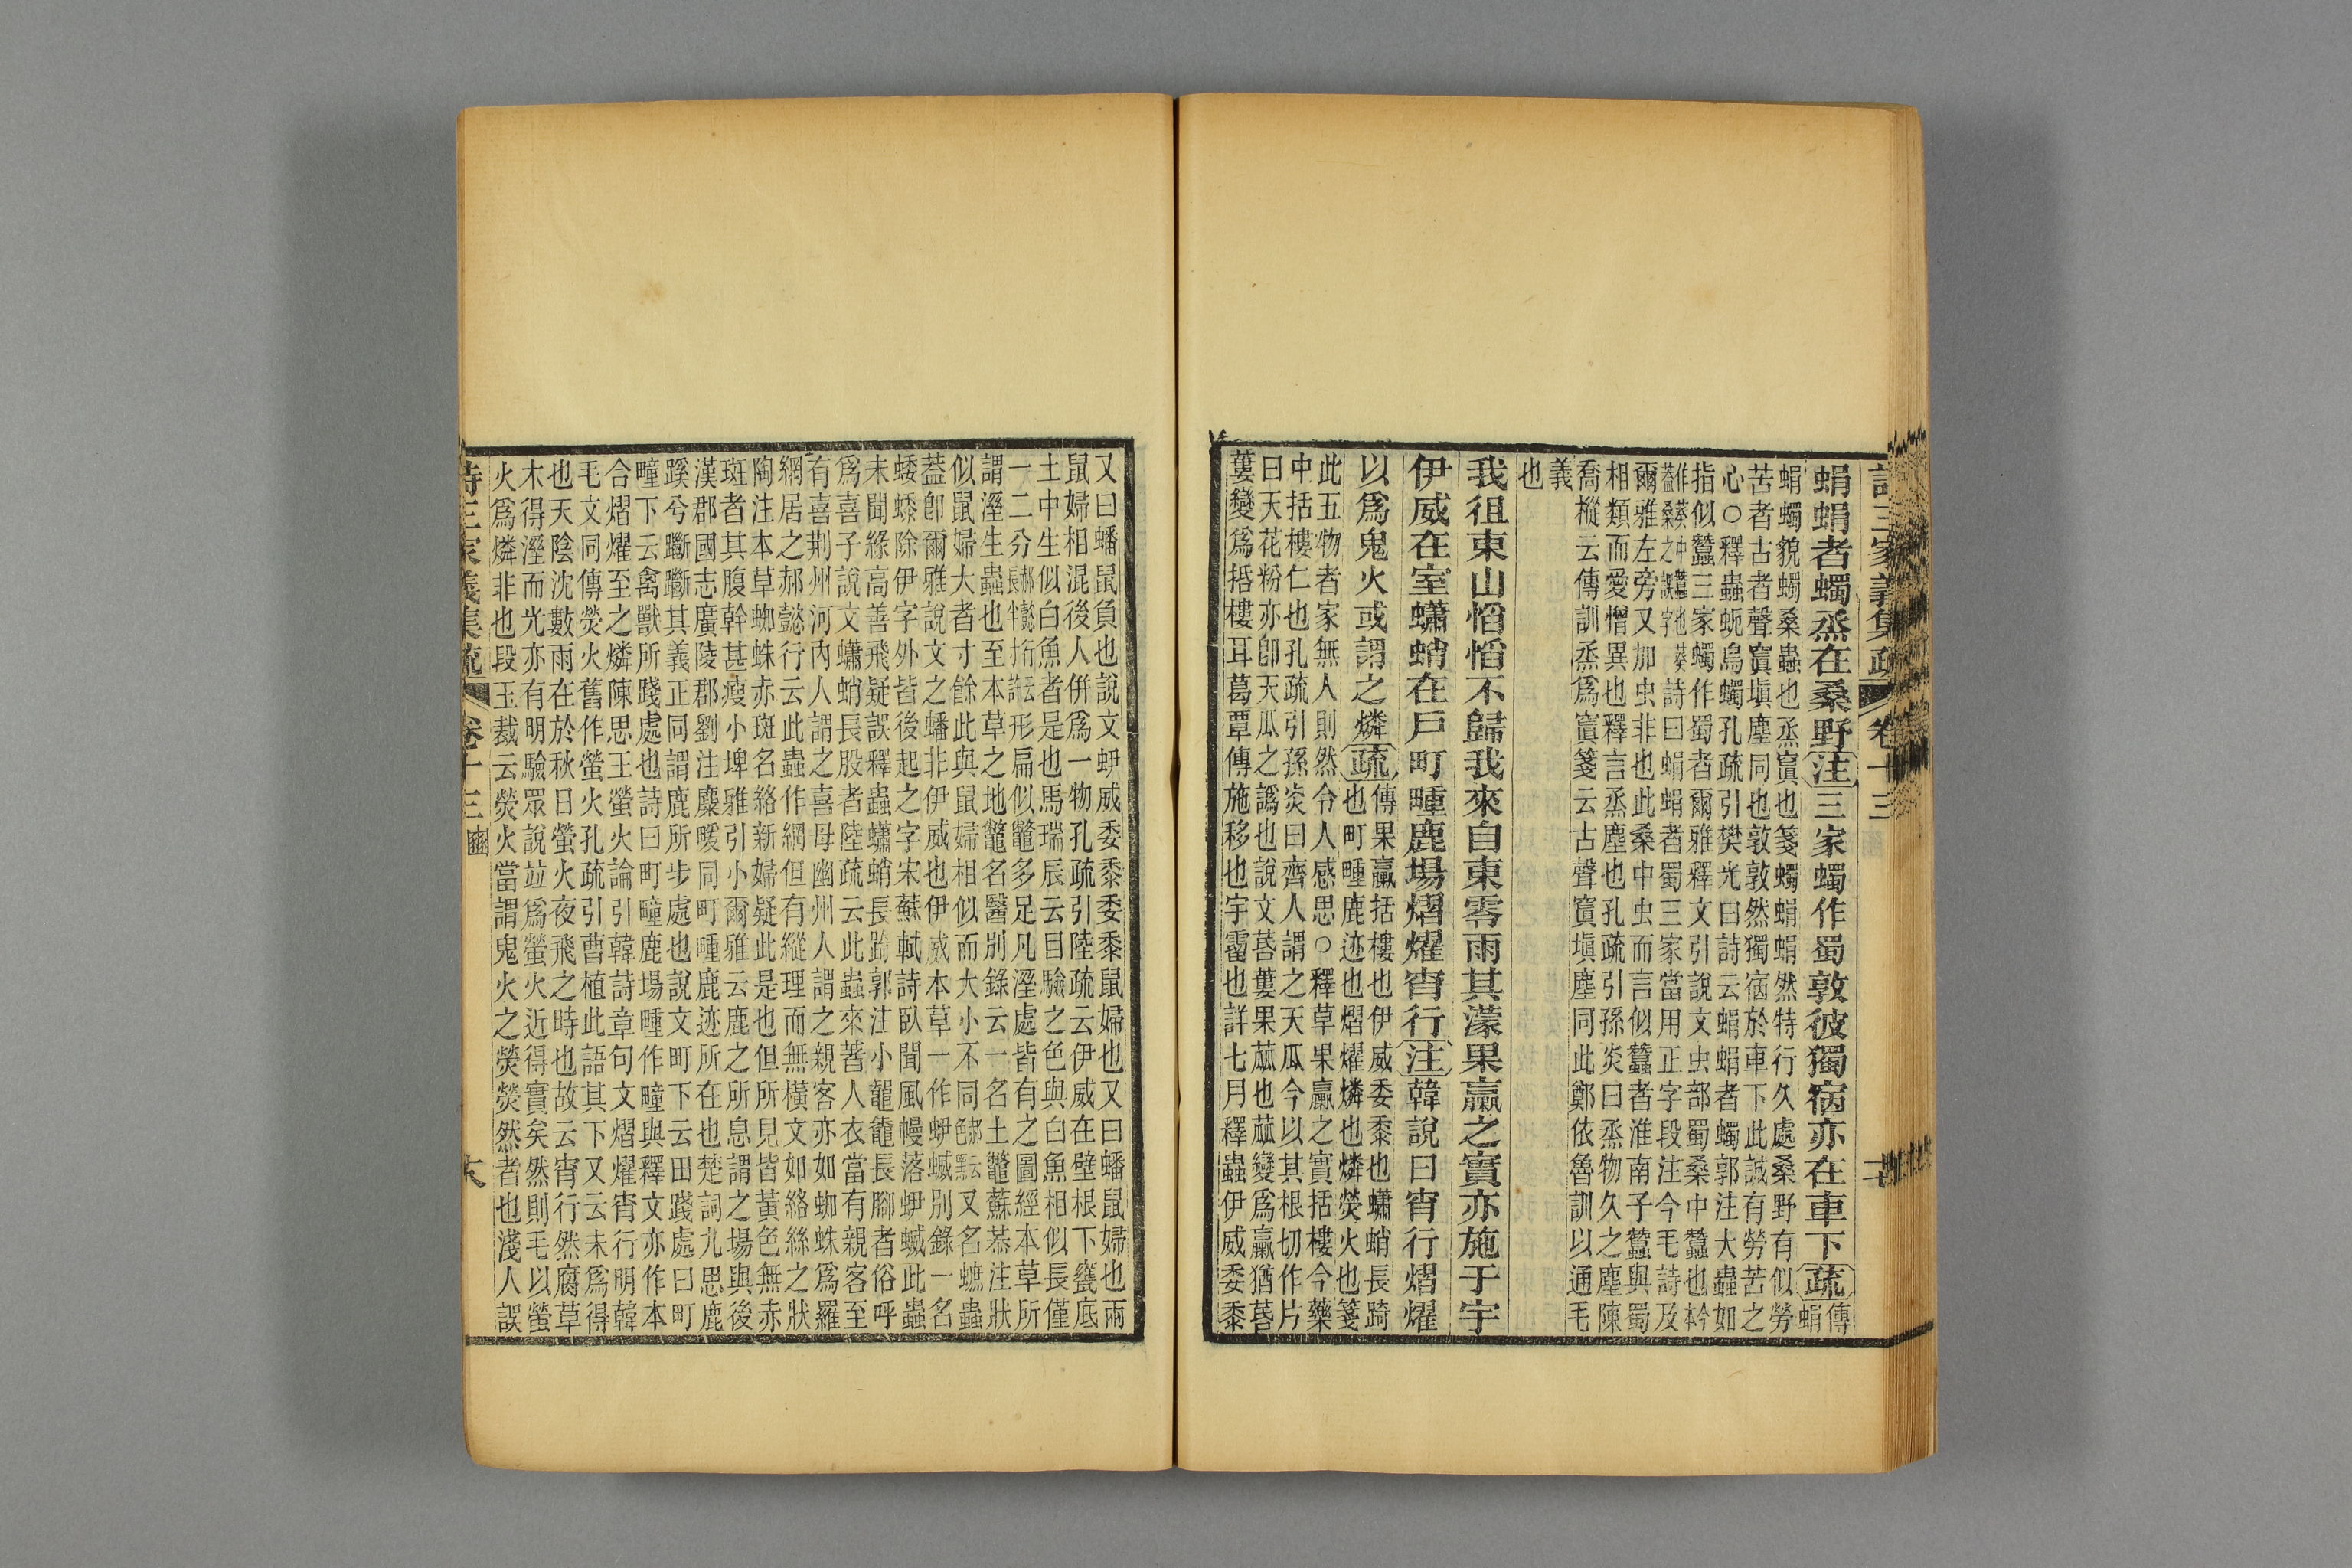 詩三家義集疏 卷十三
蜎蜎者蠋烝在桑野注三家蠋作蜀敦彼獨宿亦在車下疏傳
蜎
蜎蠋貌蠋桑蟲也烝窴也箋蠋蜎蜎然特行久處桑野有似勞
苦者古者聲窴塡塵同也敦敦然獨宿於車下此誠有勞苦之
心○釋蟲蚅烏蠋孔疏引樊光曰詩云蜎蜎者蠋郭注大蟲如
指似蠶三家蠋作蜀者爾雅釋文引說文虫部蜀桑中蠶也
詩曰蜎蜎者蜀三家當用正字段注今毛詩及
爾雅左旁又加虫非也此桑中虫而言似蠶者淮南子蠶與蜀
相類而愛憎異也釋言烝塵也孔疏引孫炎曰烝物久之塵陳
喬樅云傳訓烝爲窴箋云古聲窴塡塵同此鄭依魯訓以通毛
義
也
我徂東山慆慆不歸我來自東零雨其濛果臝之實亦施于宇
伊威在室蠨蛸在戶町畽鹿場熠燿宵行注韓說曰宵行熠燿
以爲鬼火或謂之燐疏傳果臝括樓也伊威委黍也蠨蛸長踦
也町畽鹿迹也熠燿燐也燐熒火也箋
此五物者家無人則然令人感思○釋草果臝之實括樓今藥
中括樓仁也孔疏引孫炎曰齊人謂之天瓜今以其根切作片
曰天花粉亦卽天瓜之譌也說文苦蔞果蓏也蓏變爲臝猶苦
蔞變爲括樓耳葛覃傳施移也宇霤也詳七月釋蟲伊威委黍
又曰蟠鼠負也說文蛜威委黍委黍鼠婦也又曰蟠鼠婦也兩
鼠婦相混後人倂爲一物孔疏引陸疏云伊威在壁根下甕底
土中生似白魚者是也馬瑞辰云目驗之色與白魚相似長僅
一二分郝懿行云形扁似鼈多足凡溼處皆有之圖經本草所
謂溼生蟲也至本草之地鼈名醫別錄云一名土鼈蘇恭注狀
似鼠婦大者寸餘此與鼠婦相似而大小不同又名䗪蟲
葢卽爾雅說文之蟠非伊威也伊威本草一作蛜蝛別錄一名
蜲𧌏除伊字外皆後起之字宋蘇軾詩臥聞風幔落蛜蝛此蟲
未聞緣高善飛疑誤釋蟲蠨蛸長踦郭注小鼅鼄長腳者俗呼
爲喜子說文蠨蛸長股者陸疏云此蟲來著人衣當有親客至
有喜荆州河內人謂之喜母幽州人謂之親客亦如蜘蛛爲羅
網居之郝懿行云此蟲作網但有縱理而無橫文如絡絲之狀
陶注本草蜘蛛赤斑名絡新婦疑此是也但所見皆黃色無赤
斑者其腹幹甚瘦小埤雅引小爾雅云鹿之所息謂之場與後
漢郡國志廣陵郡劉注麋畯同町畽鹿迹所在也楚詞九思鹿
蹊兮躖躖其義正同謂鹿所步處也說文町下云田踐處曰町
疃下云禽獸所踐處也詩曰町疃鹿場畽作疃與釋文亦作本
合熠燿至之燐陳思王螢火論引韓詩章句文熠燿宵行明韓
毛文同傳熒火舊作螢火孔疏引曹植此語其下又云未爲得
也天陰沈數雨在於秋日螢火夜飛之時也故云宵行然腐草
木得溼而光亦有明驗眾說竝爲螢火近得實矣然則毛以螢
火爲燐非也段玉裁云熒火當謂鬼火之熒熒然者也淺人誤
詩三家義集疏 卷十三 豳